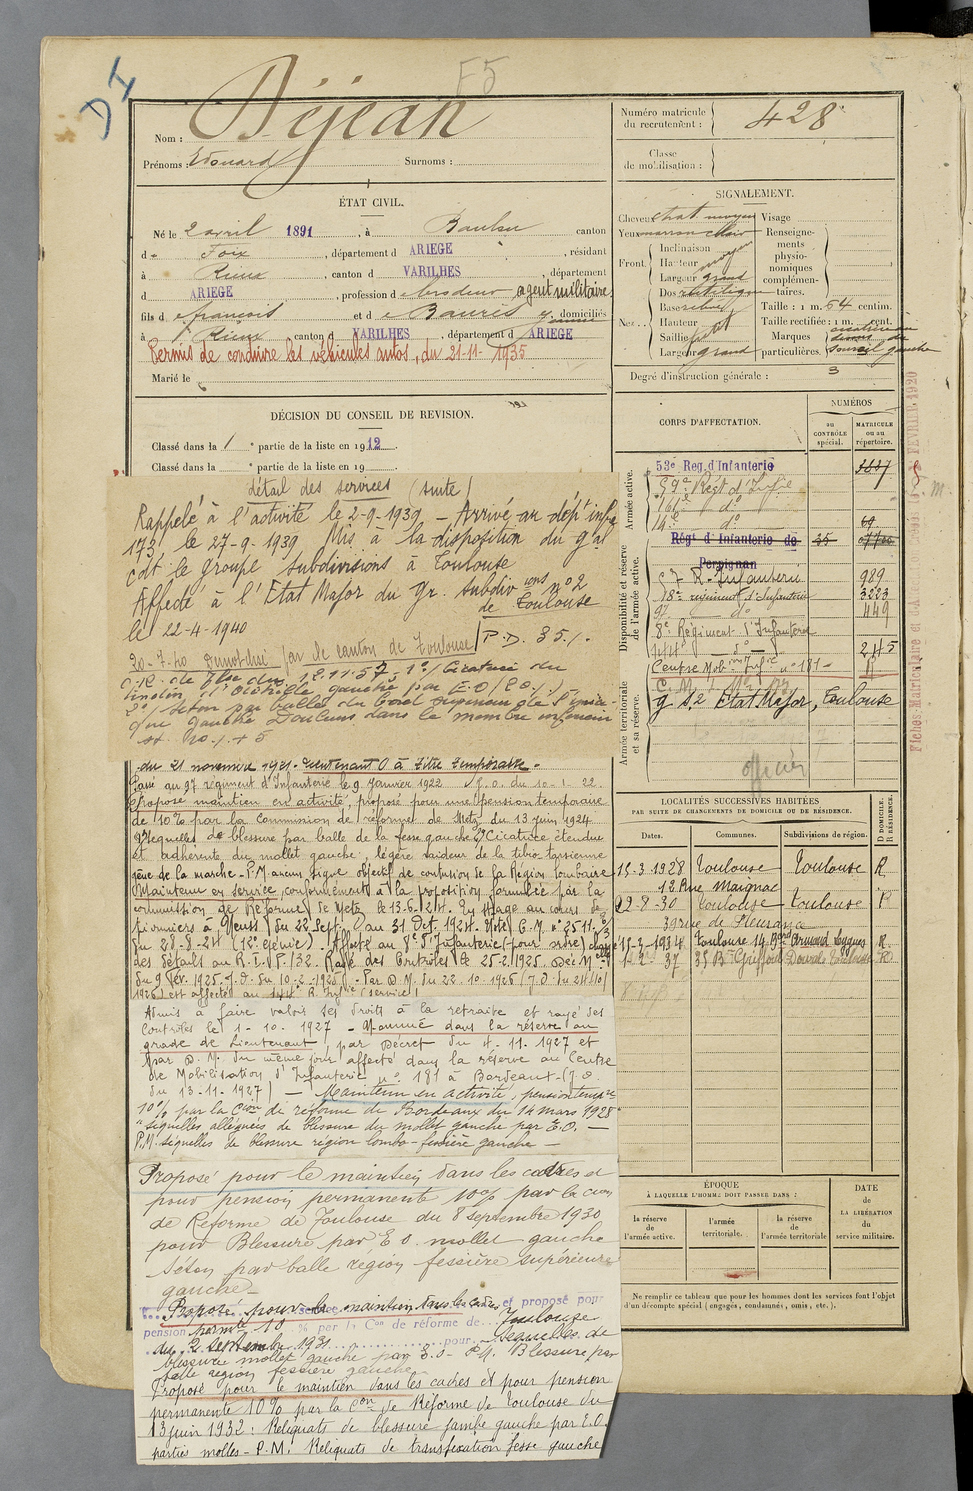 F5
Déjean
Nom :
Prénoms : Edouard Surnoms :
ÉTAT CIVIL.
Né le 2 avril 1891, à Baulou canton
de Foix, département d ARIEGE, résidant
à Rieux, canton d VARILHES, département
d ARIEGE, profession d brodeur agent militaire
fils d François et d Baurès, domiciliés
à Rieux, canton d VARILHES, département d ARIEGE
Permis de conduire les véhicules autos, du 21-11-1935
Marié le
DÉCISION DU CONSEIL DE REVISION.
Classé dans la 1 e partie de la liste en 1912.
Classé dans la e partie de la liste en 19
détail des services (suite)
Rappelé à l'activité le 2-9-1939 – Arrivé au dépôt infie
173 le 27-9-1939 Mis à la disposition du gal
cdt le groupe subdivisions à Toulouse
Affecté à l'Etat Major du gr. subdivions n°2
de Toulouse
le 22-4-1940
P.D. 35./.
20-7-40
gauche par E.O
2°/ Séton par balle du bord supérieur de
gauche Douleurs dans le membre inférieur
du 21 novembre 1921. Lieutenant à titre temporaire.
Passé au 97 régiment d'Infanterie le 9 Janvier 1922 J.O. du 10-1-22.
Proposé maintien en activité, proposé pour une pension temporaire
de 10% par la Commission de réforme de Metz du 13 juin 1924
Séquelles de blessure par balle de la fesse gauche Cicatrice étendue
et adhérente du mollet gauche, légère raideur de la tibio-tarsienne
gêne de la marche - P.M. aucun signe objectif de contusion de la Région lombaire
Maintenu en service conformément à la proposition formulée par la
commission de Réforme de Metz le 13-6-24. En stage au cours de
pionniers à du 22 Sept. au 31 Oct. 1924. Note C.M. n° 2511
du 28-8-24 (12e Génie). Affecté au 8e d'Infanterie (pour ordre) chargé
des détails au R.I.P./32. Rayé des Contrôles le 25-2-1925. Déc. M.
du 9 Fév. 1925. J.O. du 10-2-1925. Par D.M. du 22.10.1926 (J.O. du
1926) est affecté au 144e R. Infie (service)
Admis à faire valoir ses droits à la retraite et rayé des
Contrôles le 1-10-1927 – Nommé dans la réserve au
grade de Lieutenant, par Décret du 4.11.1927 et
par D.M. du même jour affecté dans la réserve au Centre
de Mobilisation d'Infanterie n° 181 à Bordeaux. (J.O.
du 13-11-1927) – Maintenu en activité, pension tempre
10% par la Cion de réforme de Bordeaux du 14 mars 1928
"séquelles alléguées de blessure du mollet gauche par E.O. –
P.M. séquelles de blessure région lombo-fessière gauche –
Proposé pour le maintien dans les cadres et
pour pension permanente 10% par la Cion
de Réforme de Toulouse du 8 septembre 1930
pour Blessure par E.O. mollet gauche
Séton par balle région fessière supérieure
gauche –
Proposé pour le maintien dans les cadres et proposé pour
pension permte 10 % par la Con de réforme de Toulouse
du 2 septembre 1931 pour Séquelles de
blessure mollet gauche par E.O. P.M. Blessure par
balle région fessière gauche
Proposé pour le maintien dans les cadres et pour pension
permanente 10% par la Con de Réforme de Toulouse du
13 juin 1932 : Reliquats de blessure jambe gauche par E.O.
parties molles - P.M. Reliquats de transfixation fesse gauche
Numéro matricule du recrutement : 428
Classe de mobilisation :
SIGNALEMENT.
Cheveux chat. moyen Visage
Yeux marron clair
Front. Inclinaison
Hauteur moyen
Largeur grand
Nez. Dos rectiligne
Base
Hauteur
Saillie petit
Largeur grand
Renseignements physionomiques complémentaires.
Taille : 1 m. 54 centim.
Taille rectifiée : 1 m. cent.
Marques particulières. cicatrice
sourcil gauche
Degré d'instruction générale : 3
CORPS D'AFFECTATION.
NUMÉROS
au CONTRÔLE spécial.
MATRICULE ou au répertoire.
Armée active.
53e Reg. d'Infanterie
59e Régt d'Infie
161e do
14e do 69
Disponibilité et réserve de l'armée active.
Régt d'Infanterie de Perpignan 35
57 R. Infanterie 989
18e régiment d'Infanterie 3223
97 do 449
8e Régiment d'Infanterie
144e do 245
Centre Mobon Infie n° 181
Armée territoriale et sa réserve.
g. s. 2 Etat Major, Toulouse
officier
LOCALITÉS SUCCESSIVES HABITÉES
PAR SUITE DE CHANGEMENTS DE DOMICILE OU DE RÉSIDENCE.
Dates. Communes. Subdivisions de région.
D DOMICILE. R RÉSIDENCE.
15-3-1928 Toulouse Toulouse R
12 Rue Maignac
22-8-30 Toulouse Toulouse R
15-2-1934 Toulouse R
37 35 Bd R
ÉPOQUE
À LAQUELLE L'HOMME DOIT PASSER DANS :
la réserve de l'armée active.
l'armée territoriale.
la réserve de l'armée territoriale
DATE de LA LIBÉRATION du service militaire.
Ne remplir ce tableau que pour les hommes dont les services font l'objet
d'un décompte spécial (engagés, condamnés, omis, etc.).
FEVRIER 1920